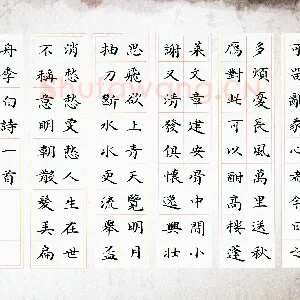 可留亂我心者今日之
多煩憂長風萬里送秋
雁對此可以酣高樓蓬
萊文章建安骨中間小
謝又清發俱懷逸興壯
思飛欲上青天覽明月
抽刀斷水水更流舉盃
消愁愁更愁人生在世
不稱意明朝散髮弄扁
舟李白詩一首